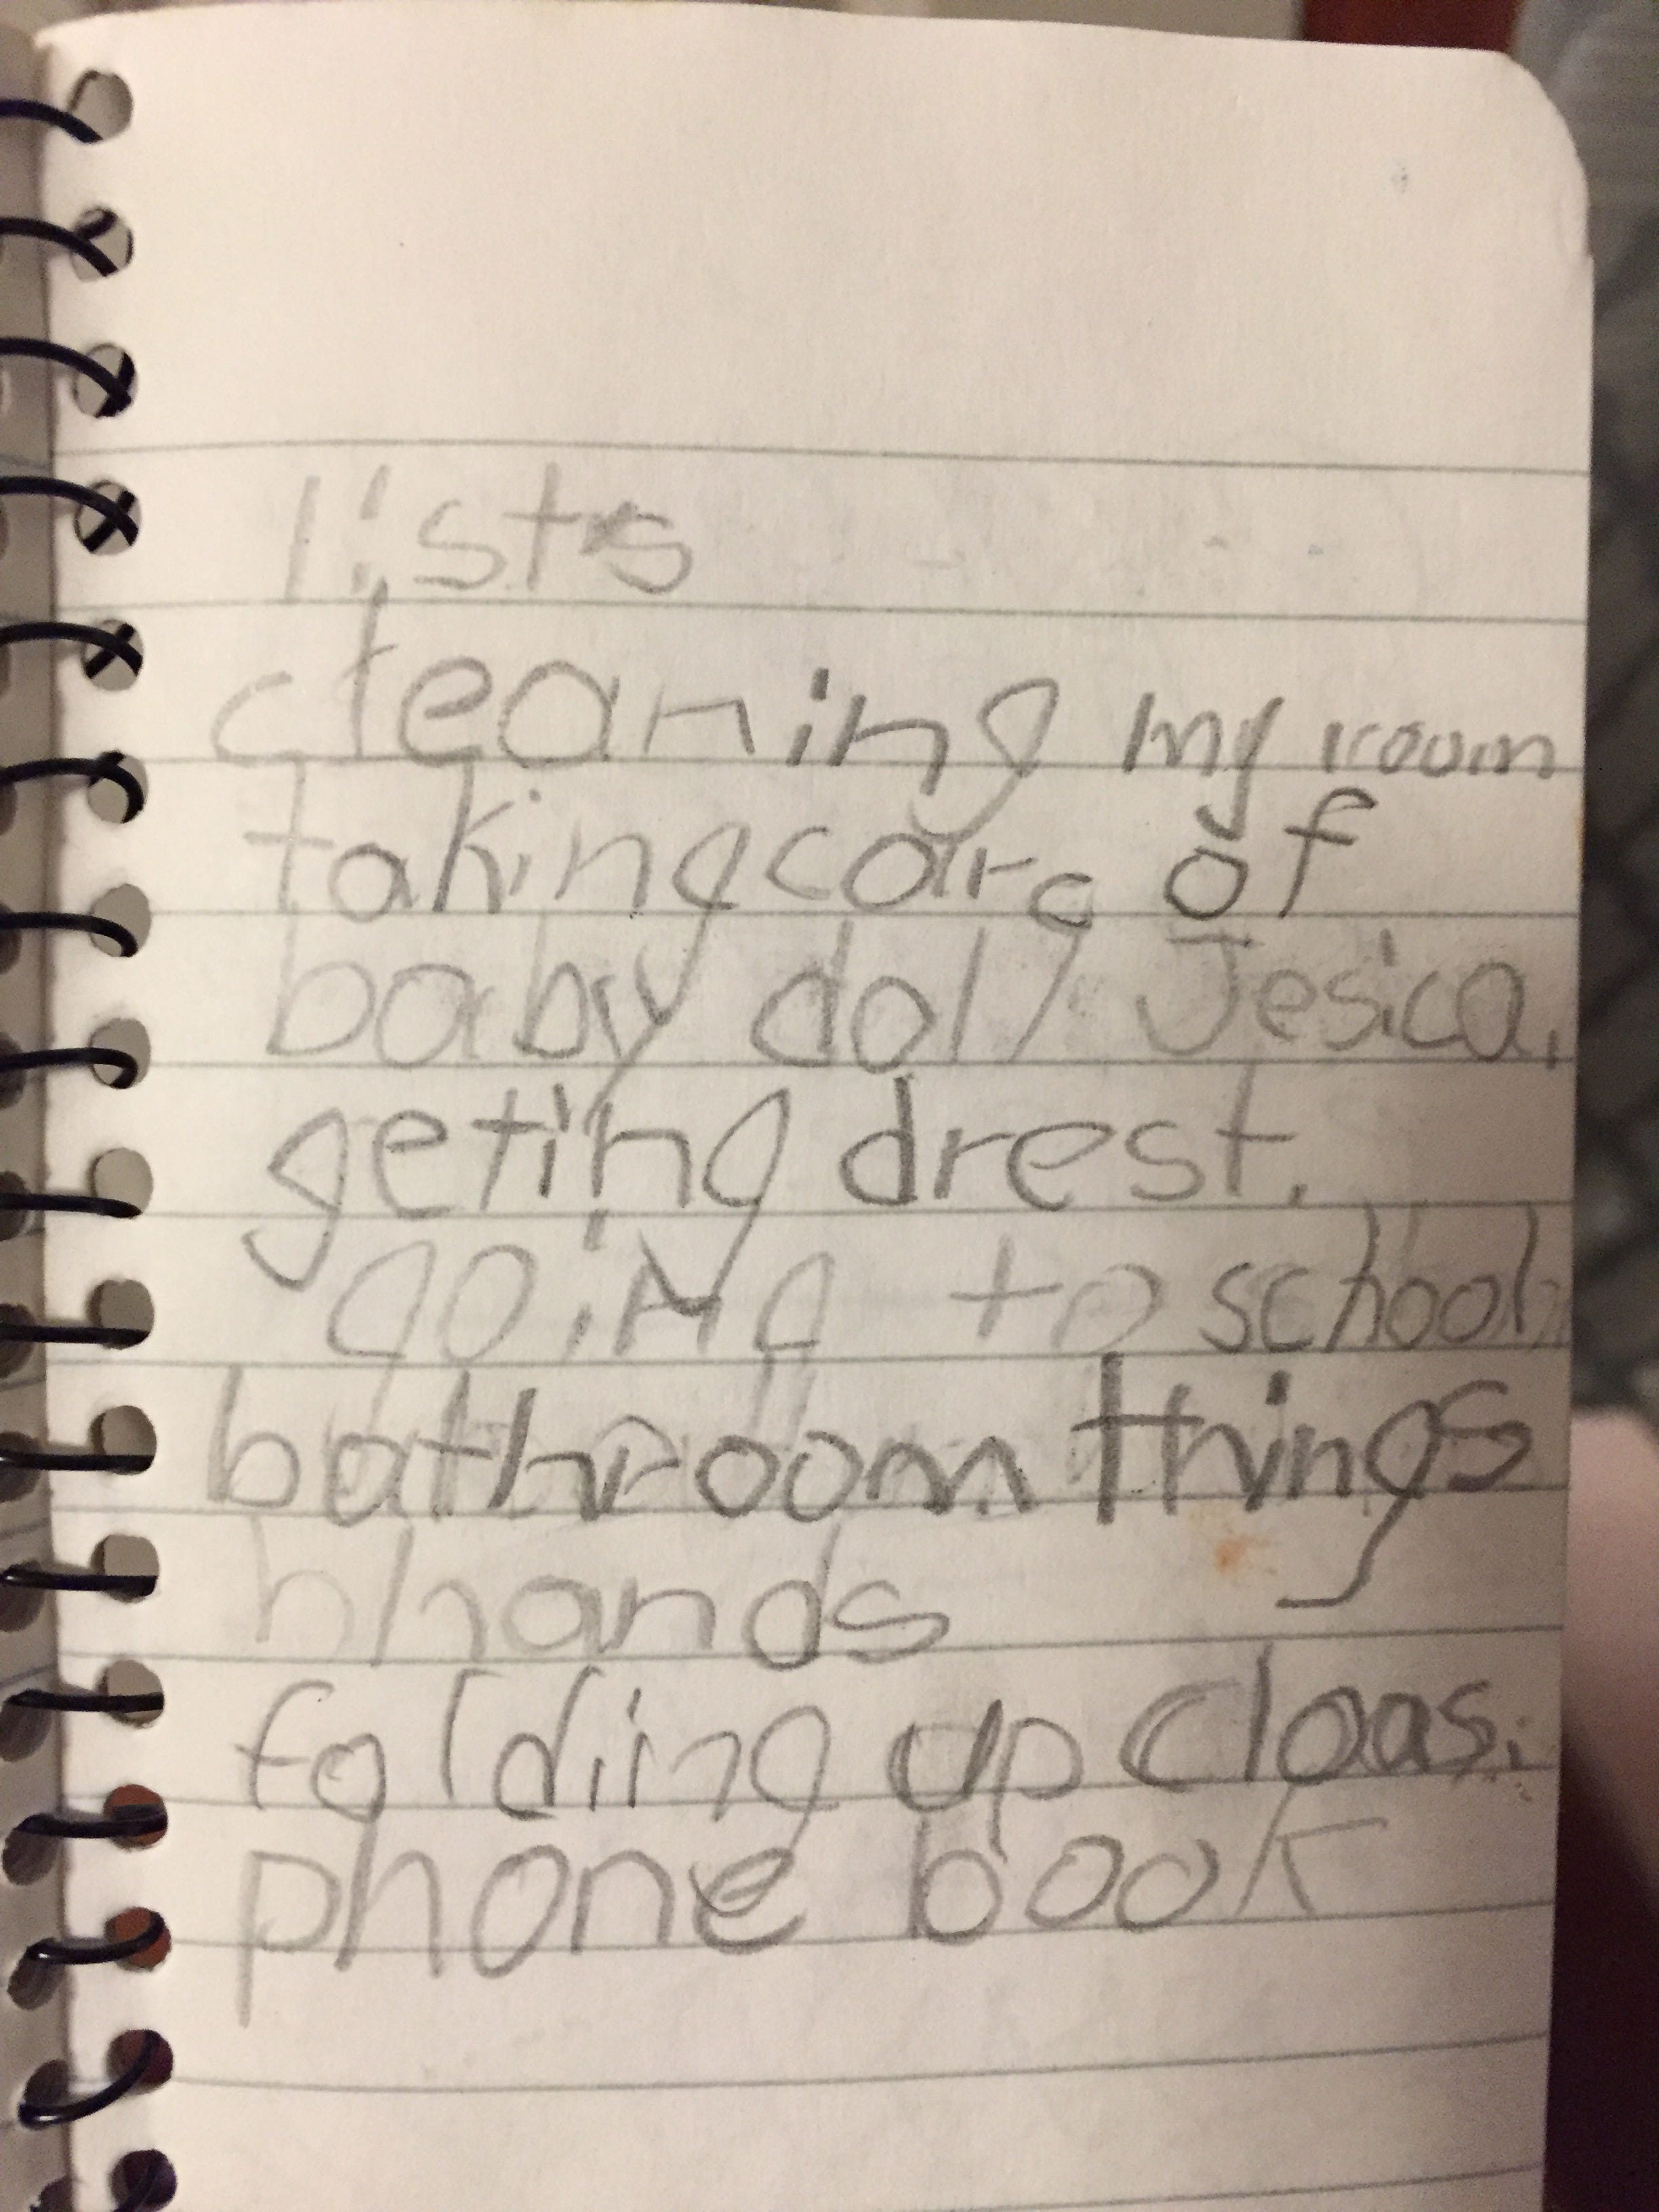 lists
cleaning my room
taking care of
baby doll Jesica.
geting drest.
going to school
bathroom things
hhands
folding up cloas.
phone book